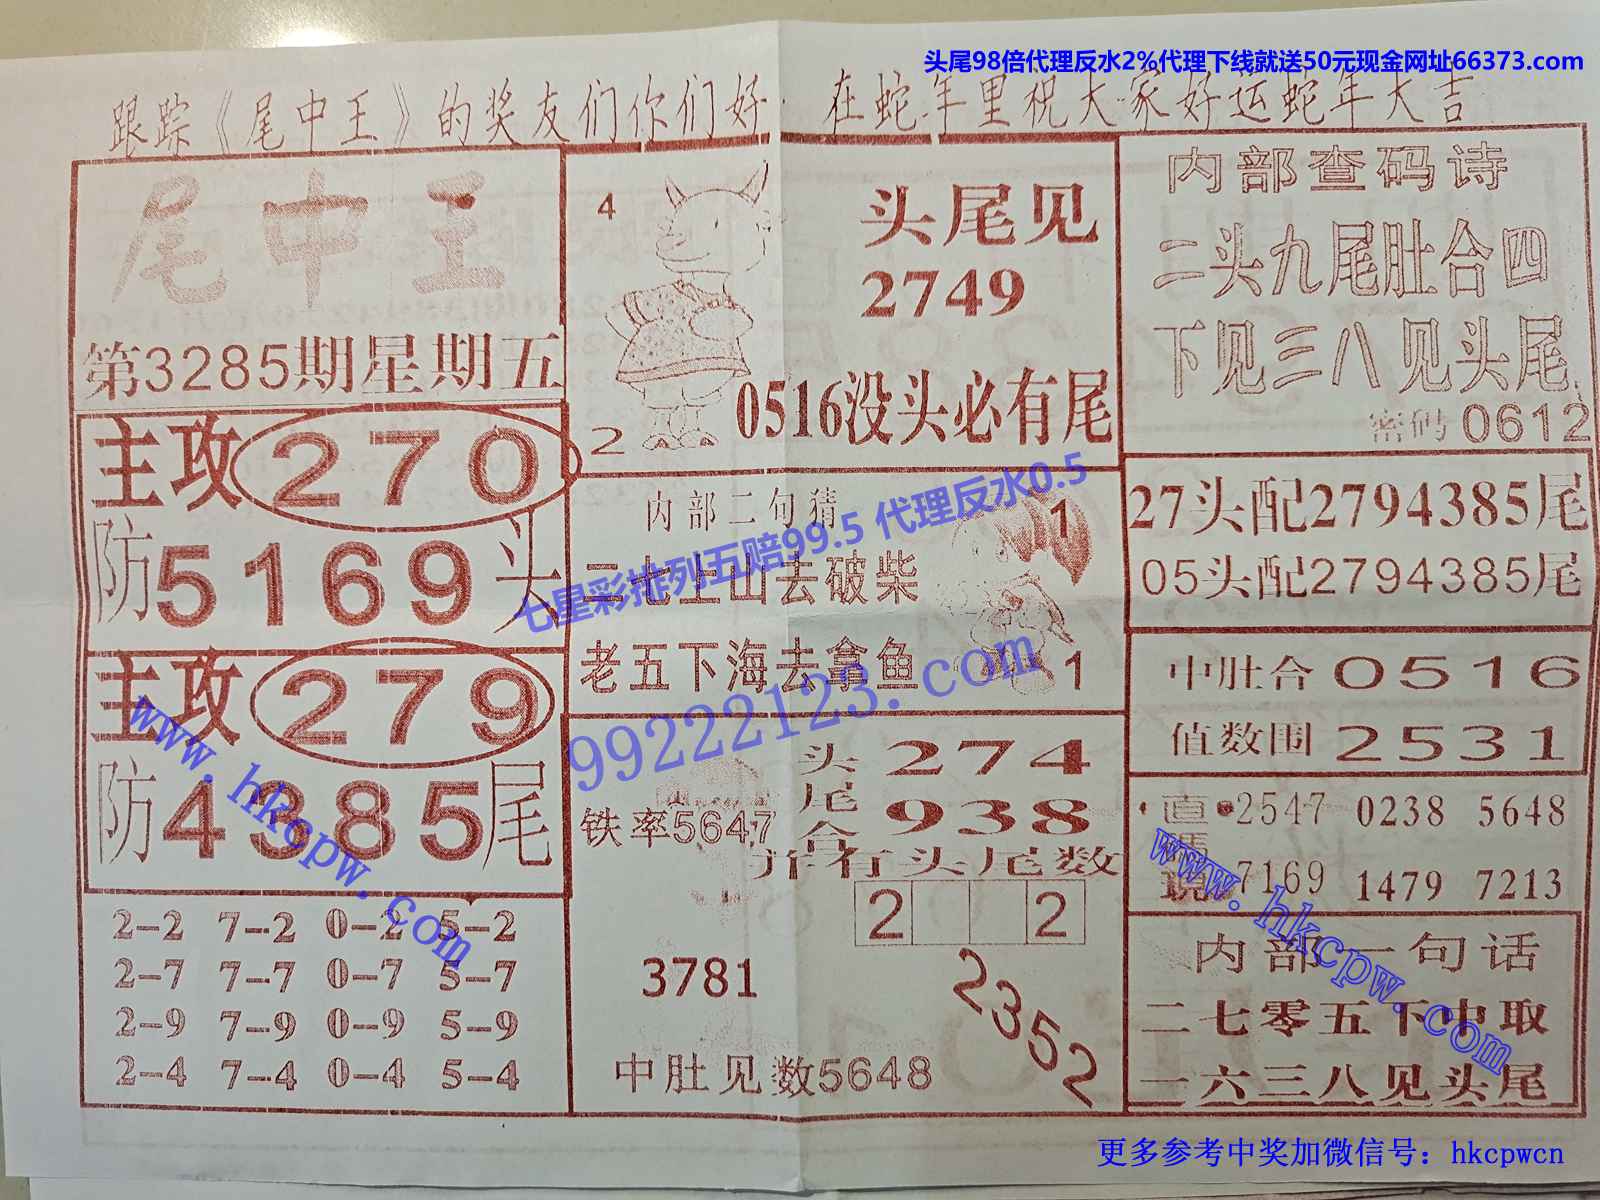 头尾98倍代理反水2%代理下线就送50元现金网址66373.com
跟踪《尾中王》的奖友们你们好 在蛇年里祝大家好运蛇年大吉
尾中王
第3285期星期五
主攻270
防5169头
主攻279
防4385尾
2-2 7-2 0-2 5-2
2-7 7-7 0-7 5-7
2-9 7-9 0-9 5-9
2-4 7-4 0-4 5-4
4
头尾见
2749
0516没头必有尾
2
内部二句猜
二七上山去破柴
1
老五下海去拿鱼
1
七星彩排列五赔99.5 代理反水0.5
99222123.com
头274
尾938
合
铁率5647
并有头尾数
2 2
3781
2352
中肚见数5648
内部查码诗
二头九尾肚合四
下见三八见头尾
密码0612
27头配2794385尾
05头配2794385尾
中肚合0516
值数围2531
直 2547 0238 5648
码
现 7169 1479 7213
内部一句话
二七零五下中取
一六三八见头尾
www.hkcpw.com
www.hkcpw.com
更多参考中奖加微信号：hkcpwcn